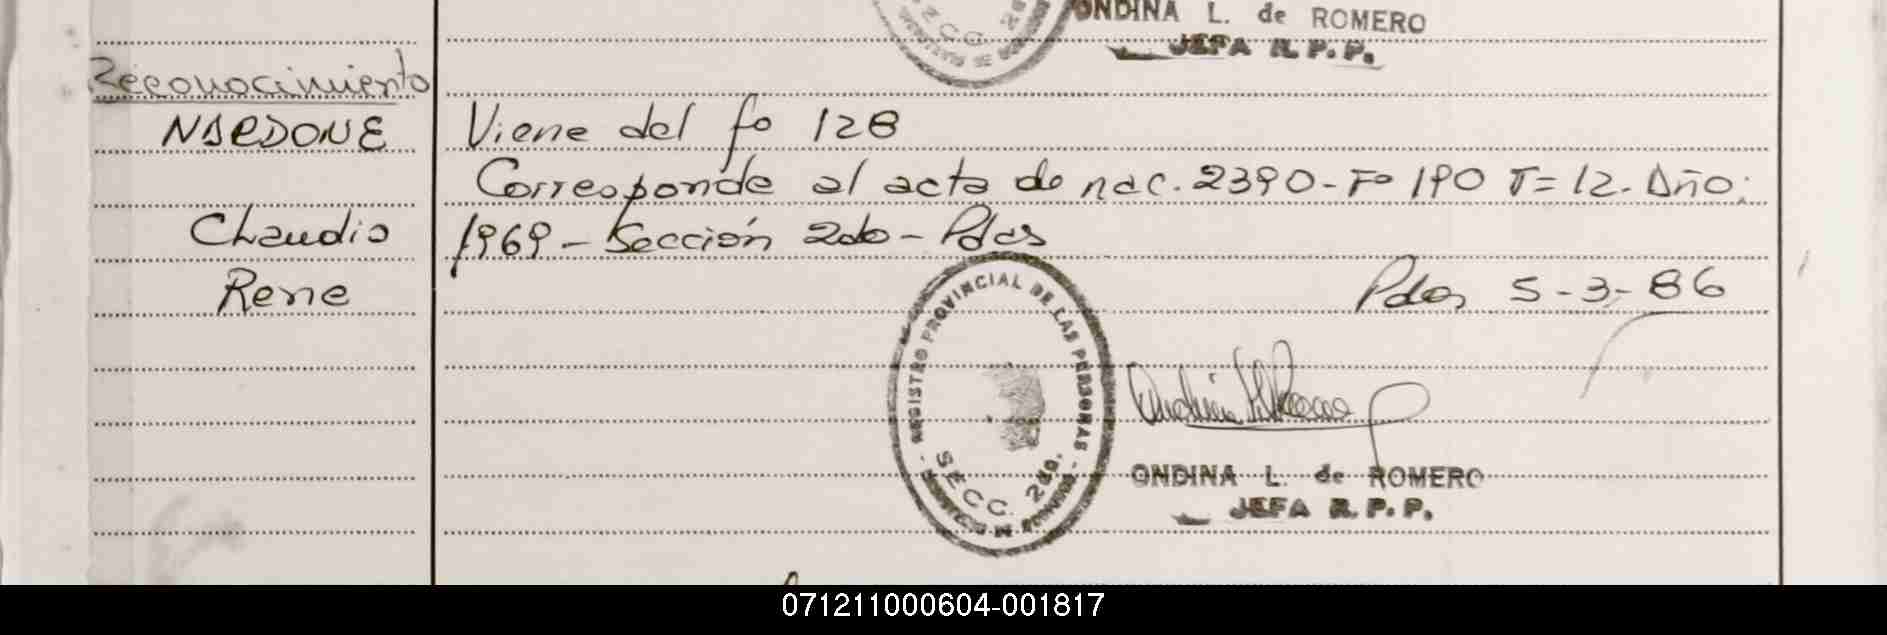 ONDINA L. de ROMERO
JEFA R. P. P.
Reconocimiento
NARDONE
Claudio
Rene
Viene del fo 128
Corresponde al acta de nac. 2390 - Fo 190 T = 12. Año:
1969 - Sección 2do - Pdas
Pdas, 5-3-86
REGISTRO PROVINCIAL DE LAS PERSONAS
SECC. 2do.
ONDINA L. de ROMERO
JEFA R. P. P.
071211000604-001817